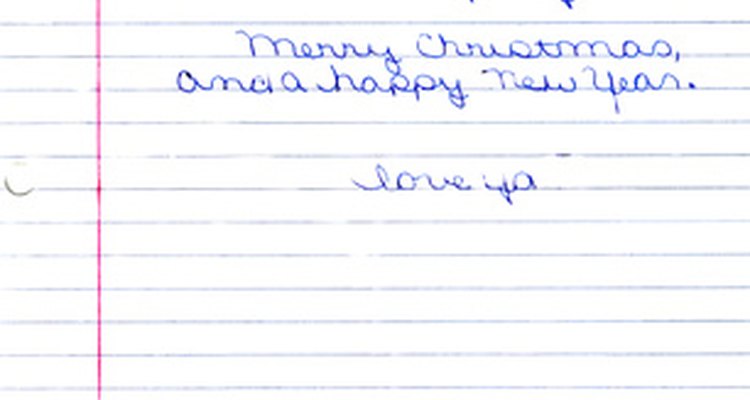 Merry Christmas,
and a happy New Year.
love ya